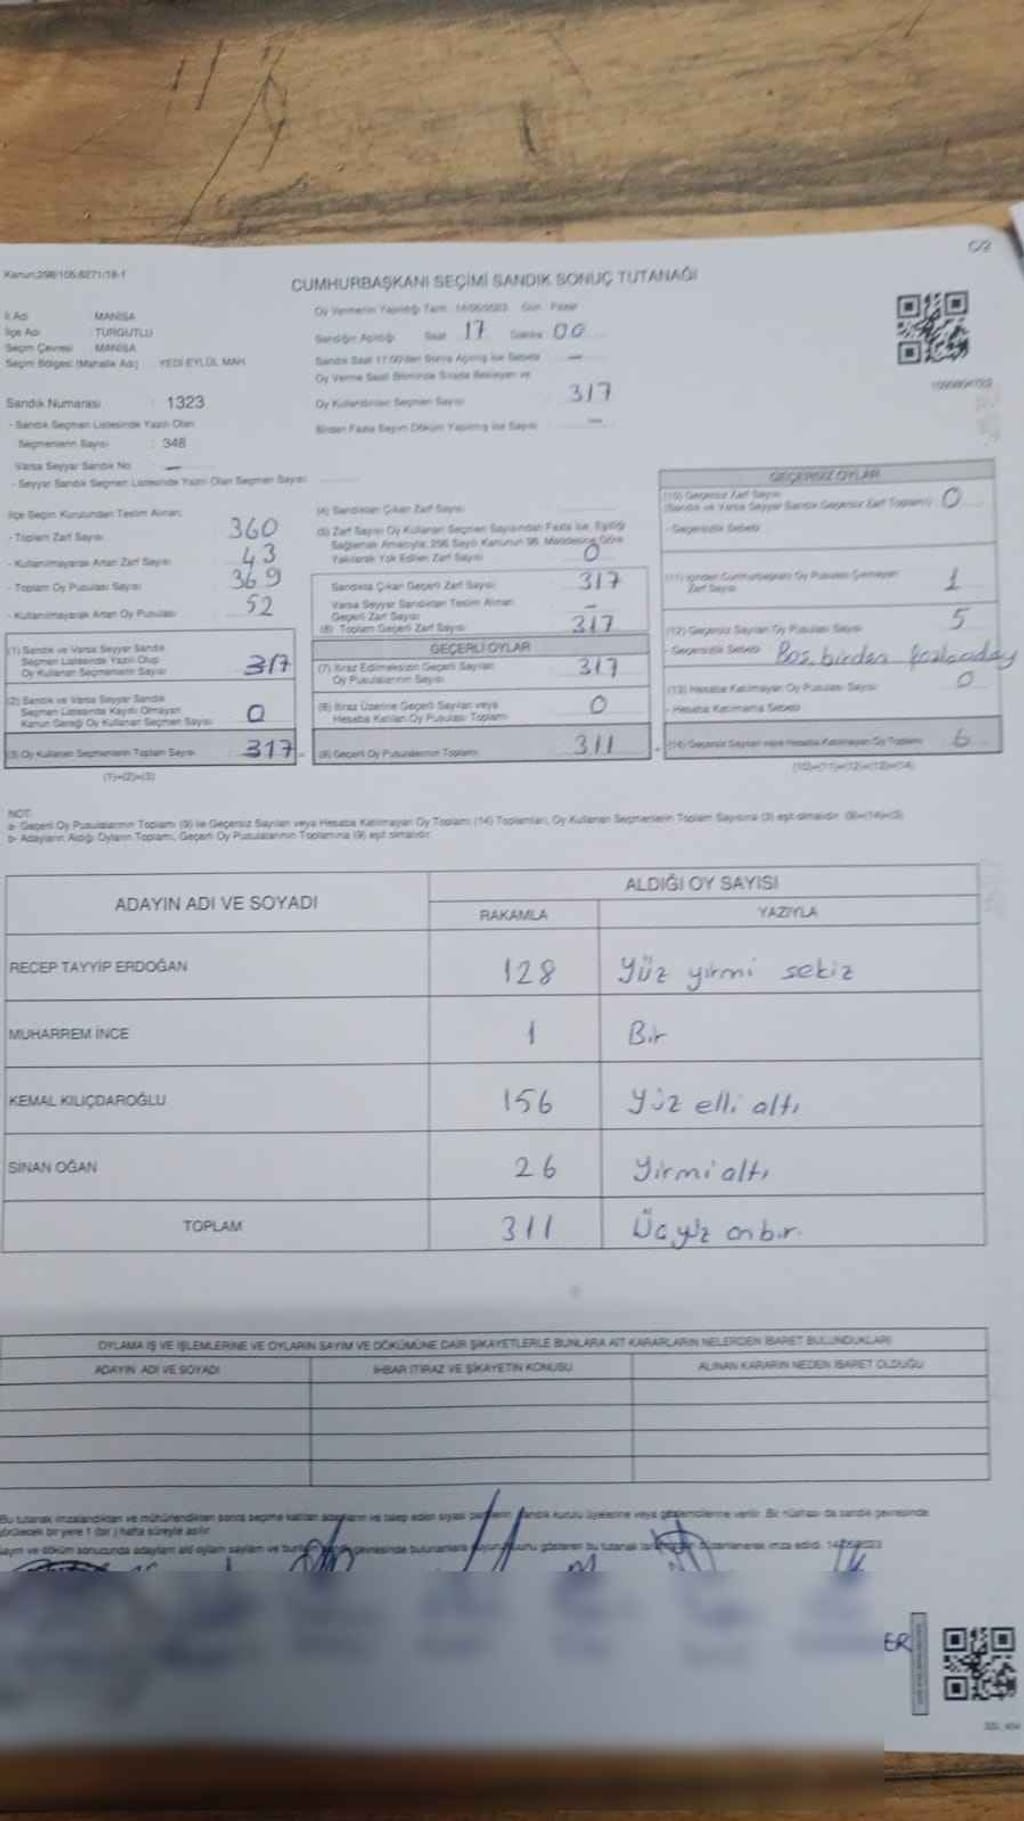 C/2
Kanun:298/105,6271/18-1
CUMHURBAŞKANI SEÇİMİ SANDIK SONUÇ TUTANAĞI
İl Adı MANİSA
İlçe Adı TURGUTLU
Seçim Çevresi MANİSA
Seçim Bölgesi (Mahalle Adı) YEDİ EYLÜL MAH.
Sandık Numarası : 1323
- Sandık Seçmen Listesinde Yazılı Olan
Seçmenlerin Sayısı : 348
Varsa Seyyar Sandık No : —
- Seyyar Sandık Seçmen Listesinde Yazılı Olan Seçmen Sayısı
Oy Vermenin Yapıldığı Tarih : 14/05/2023 Gün : Pazar
Sandığın Açıldığı Saat 17 Dakika 00
Sandık Saat 17:00'den Sonra Açılmış İse Sebebi —
Oy Verme Saati Bitiminde Sırada Bekleyen ve
Oy Kullandırılan Seçmen Sayısı 317
Birden Fazla Sayım Döküm Yapılmış İse Sayısı —
İlçe Seçim Kurulundan Teslim Alınan;
- Toplam Zarf Sayısı 360
- Kullanılmayarak Artan Zarf Sayısı 43
- Toplam Oy Pusulası Sayısı 369
- Kullanılmayarak Artan Oy Pusulası 52
(1) Sandık ve Varsa Seyyar Sandık
Seçmen Listesinde Yazılı Olup
Oy Kullanan Seçmenlerin Sayısı 317
(2) Sandık ve Varsa Seyyar Sandık
Seçmen Listesinde Kaydı Olmayan
Kanun Gereği Oy Kullanan Seçmen Sayısı 0
(3) Oy Kullanan Seçmenlerin Toplam Sayısı 317
(1)+(2)=(3)
(4) Sandıktan Çıkan Zarf Sayısı
(5) Zarf Sayısı Oy Kullanan Seçmen Sayısından Fazla İse, Eşitliği
Sağlamak Amacıyla; 298 Sayılı Kanunun 98. Maddesine Göre
Yakılarak Yok Edilen Zarf Sayısı 0
Sandıkta Çıkan Geçerli Zarf Sayısı 317
Varsa Seyyar Sandıktan Teslim Alınan
Geçerli Zarf Sayısı –
(6) Toplam Geçerli Zarf Sayısı 317
GEÇERLİ OYLAR
(7) İtiraz Edilmeksizin Geçerli Sayılan
Oy Pusulalarının Sayısı 317
(8) İtiraz Üzerine Geçerli Sayılan veya
Hesaba Katılan Oy Pusulası Toplamı 0
(9) Geçerli Oy Pusulalarının Toplamı 311
GEÇERSİZ OYLAR
(10) Geçersiz Zarf Sayısı
(Sandık ve Varsa Seyyar Sandık Geçersiz Zarf Toplamı) 0
- Geçersizlik Sebebi
(11) İçinden Cumhurbaşkanı Oy Pusulası Çıkmayan
Zarf Sayısı 1
(12) Geçersiz Sayılan Oy Pusulası Sayısı 5
- Geçersizlik Sebebi Boş, birden fazla aday
(13) Hesaba Katılmayan Oy Pusulası Sayısı 0
- Hesaba Katılmama Sebebi
(14) Geçersiz Sayılan veya Hesaba Katılmayan Oy Toplamı 6
(10)+(11)+(12)+(13)=(14)
NOT:
a- Geçerli Oy Pusulalarının Toplamı (9) ile Geçersiz Sayılan veya Hesaba Katılmayan Oy Toplamı (14) Toplamları, Oy Kullanan Seçmenlerin Toplam Sayısına (3) eşit olmalıdır. (9)+(14)=(3)
b- Adayların Aldığı Oyların Toplamı, Geçerli Oy Pusulalarının Toplamına (9) eşit olmalıdır.
ADAYIN ADI VE SOYADI ALDIĞI OY SAYISI
RAKAMLA YAZIYLA
RECEP TAYYİP ERDOĞAN 128 Yüz yirmi sekiz
MUHARREM İNCE 1 Bir
KEMAL KILIÇDAROĞLU 156 Yüz elli altı
SİNAN OĞAN 26 Yirmi altı
TOPLAM 311 Üçyüz onbir.
OYLAMA İŞ VE İŞLEMLERİNE VE OYLARIN SAYIM VE DÖKÜMÜNE DAİR ŞİKAYETLERLE BUNLARA AİT KARARLARIN NELERDEN İBARET BULUNDUKLARI
ADAYIN ADI VE SOYADI İHBAR İTİRAZ VE ŞİKAYETİN KONUSU ALINAN KARARIN NEDEN İBARET OLDUĞU
Bu tutanak imzalandıktan ve mühürlendikten sonra seçime katılan adayların ve talep eden siyasi partilerin sandık kurulu üyelerine veya gözlemcilerine verilir. Bir nüshası da sandık çevresinde
görülecek bir yere 1 (bir) hafta süreyle asılır.
Sayım ve döküm sonucunda adayların aldığı oyların sayılarını ve gösteren bu tutanak düzenlenerek imza edildi. 14/05/2023
ER